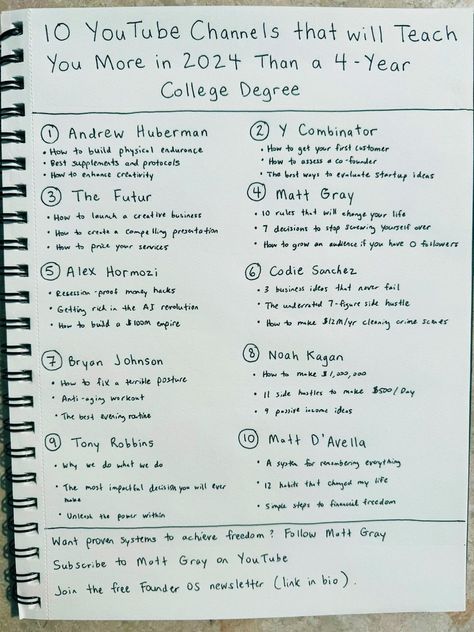 10 YouTube Channels that will Teach
You More in 2024 Than a 4-Year
College Degree
① Andrew Huberman
• How to build physical endurance
• Best supplements and protocols
• How to enhance creativity
② Y Combinator
• How to get your first customer
• How to assess a co-founder
• The best ways to evaluate startup ideas
③ The Futur
• How to launch a creative business
• How to create a compelling presentation
• How to price your services
④ Matt Gray
• 10 rules that will change your life
• 7 decisions to stop screwing yourself over
• How to grow an audience if you have 0 followers
⑤ Alex Hormozi
• Recession-proof money hacks
• Getting rich in the AI revolution
• How to build a $100M empire
⑥ Codie Sanchez
• 3 business ideas that never fail
• The underrated 7-figure side hustle
• How to make $12M/yr cleaning crime scenes
⑦ Bryan Johnson
• How to fix a terrible posture
• Anti-aging workout
• The best evening routine
⑧ Noah Kagan
• How to make $1,000,000
• 11 side hustles to make $500/Day
• 9 passive income ideas
⑨ Tony Robbins
• Why we do what we do
• The most impactful decision you will ever
make
• Unleash the power within
⑩ Matt D'Avella
• A system for remembering everything
• 12 habits that changed my life
• Simple steps to financial freedom
Want proven systems to achieve freedom? Follow Matt Gray
Subscribe to Matt Gray on YouTube
Join the free Founder OS newsletter (link in bio).